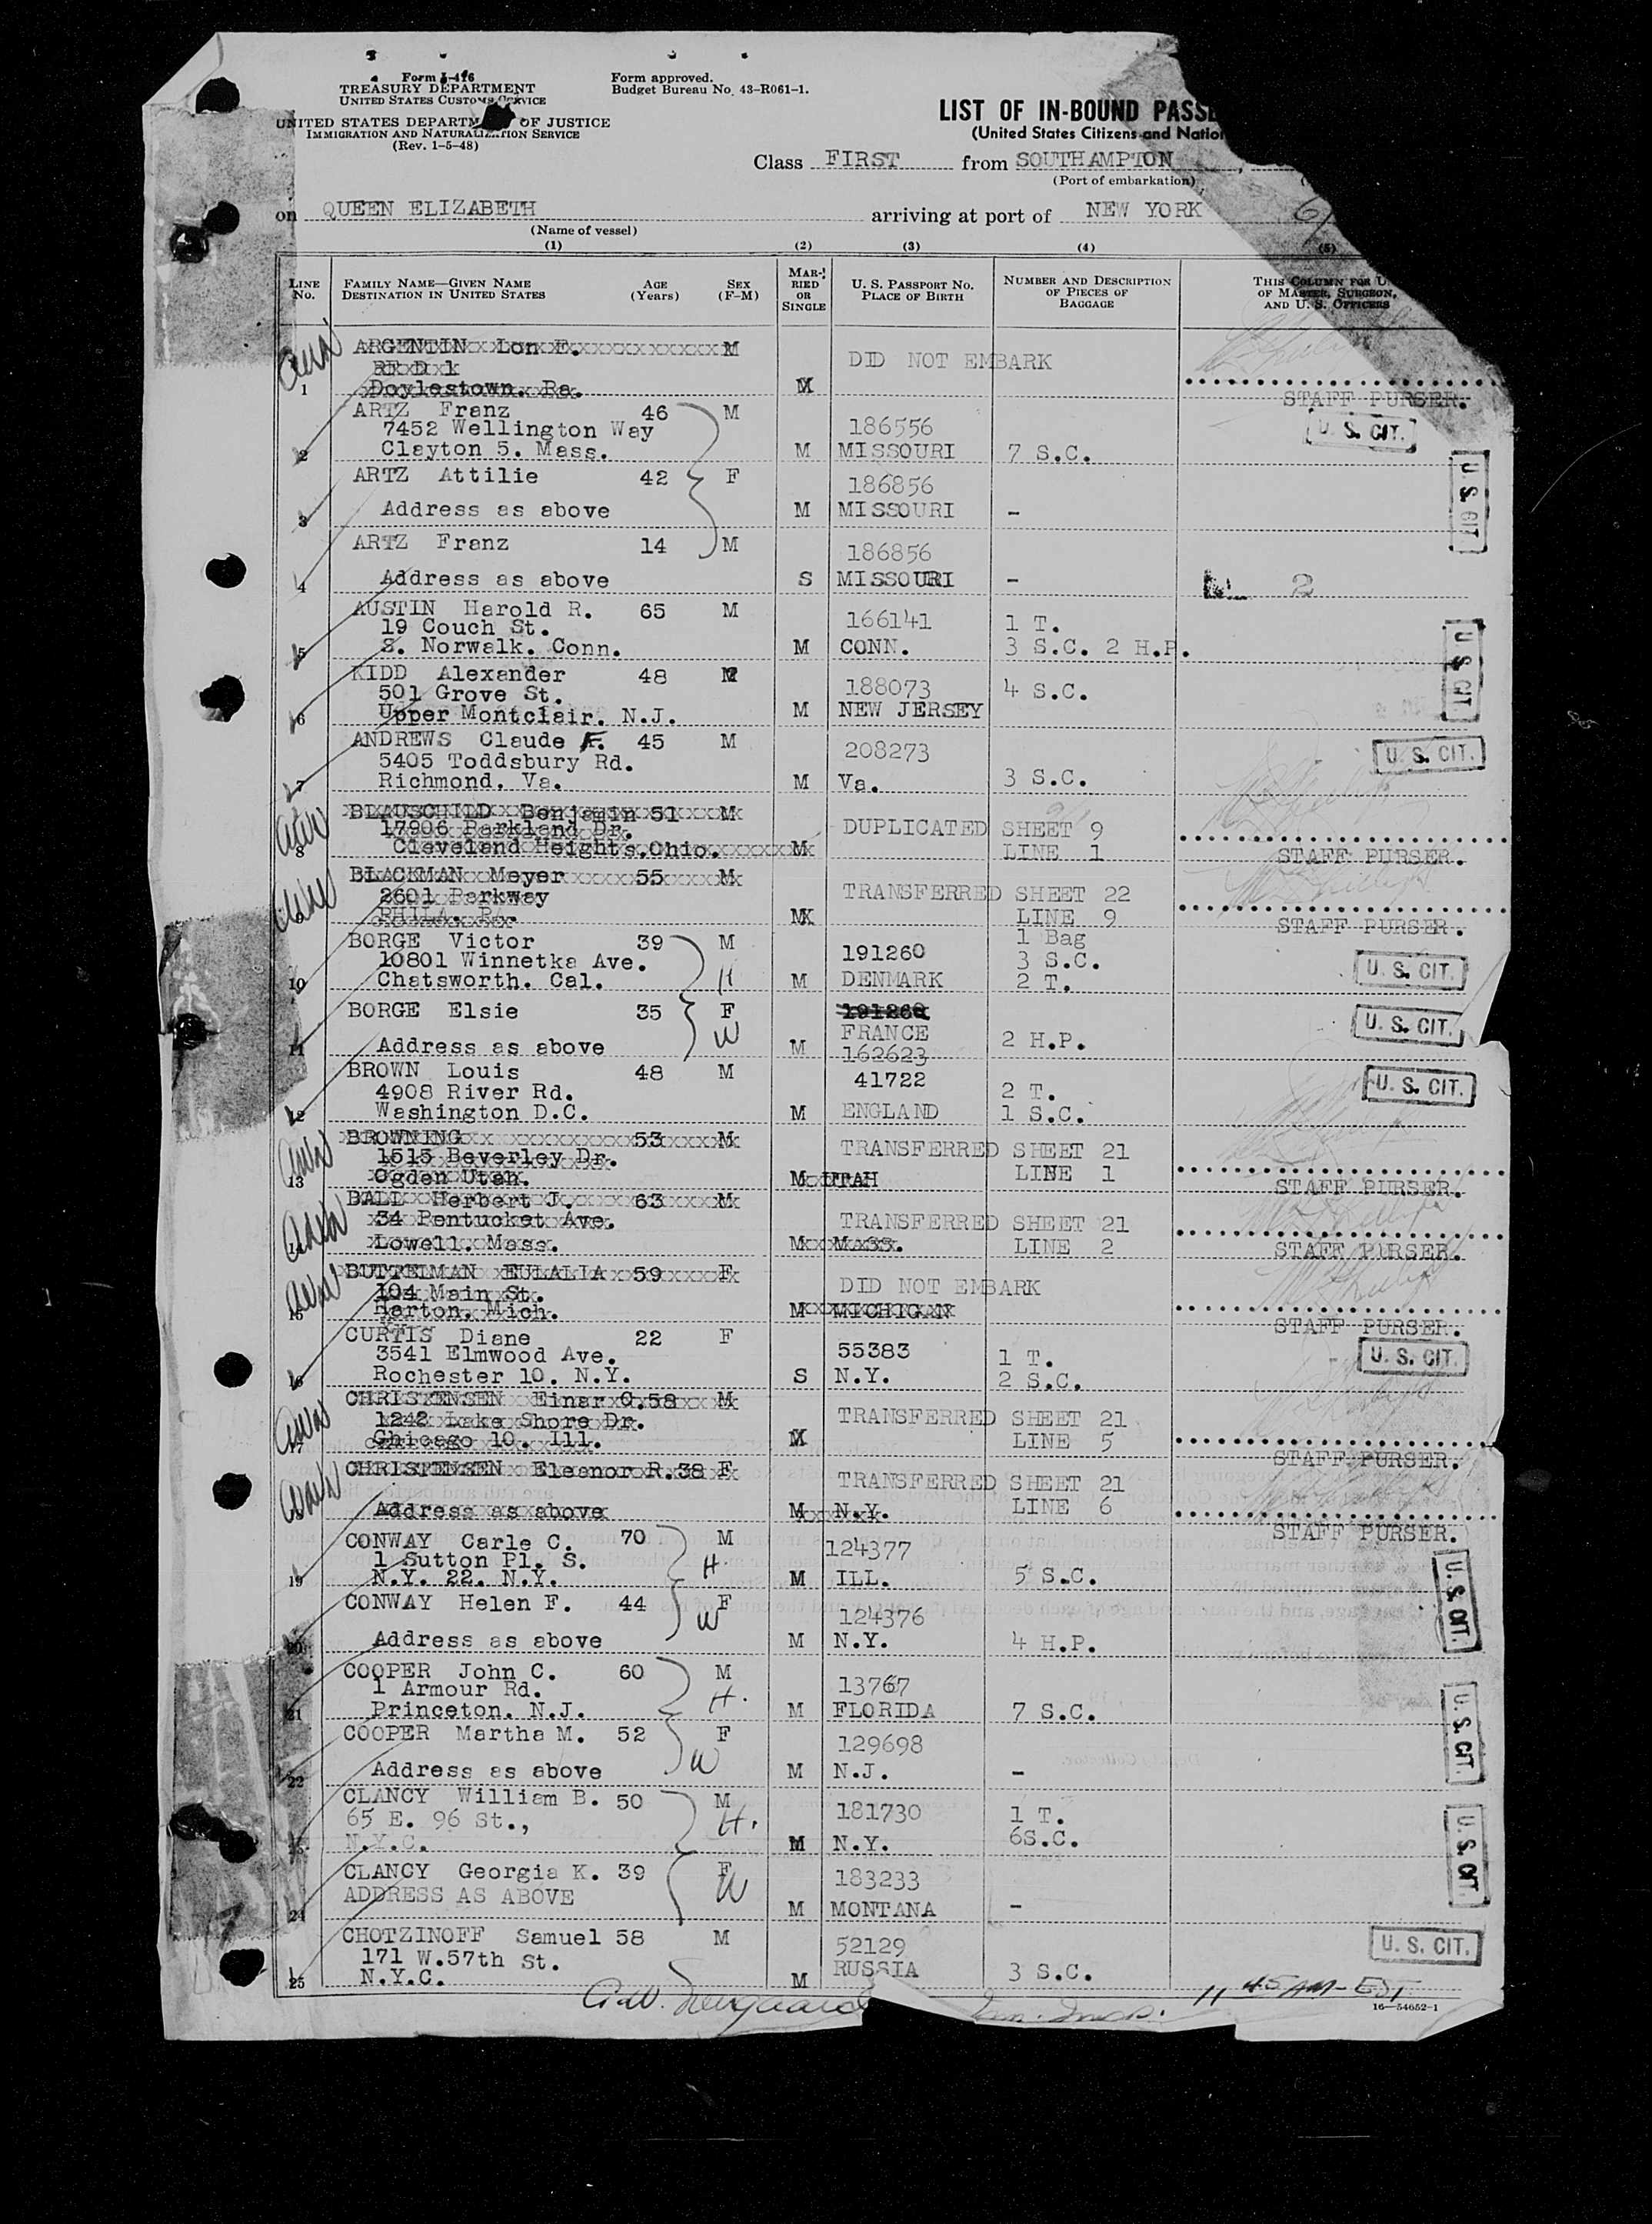 Form I-416
TREASURY DEPARTMENT
UNITED STATES CUSTOMS SERVICE
UNITED STATES DEPARTMENT OF JUSTICE
IMMIGRATION AND NATURALIZATION SERVICE
(Rev. 1-5-48)
Form approved.
Budget Bureau No. 43-R061-1.
LIST OF IN-BOUND PASSE
(United States Citizens and Nation
Class FIRST from SOUTHAMPTON,
(Port of embarkation)
on QUEEN ELIZABETH arriving at port of NEW YORK
(Name of vessel)
(1) (2) (3) (4) (5)
LINE No. FAMILY NAME—GIVEN NAME DESTINATION IN UNITED STATES AGE (Years) SEX (F-M) MAR-RIED OR SINGLE U. S. PASSPORT NO. PLACE OF BIRTH NUMBER AND DESCRIPTION OF PIECES OF BAGGAGE THIS COLUMN FOR U. OF MASTER, SURGEON, AND U. S. OFFICERS
ARGENTIN Lon F. M
RF D 1 DID NOT EMBARK
1 Doylestown. Pa. M STAFF PURSER.
ARTZ Franz 46 M
7452 Wellington Way 186556 U. S. CIT.
2 Clayton 5. Mass. M MISSOURI 7 S.C.
ARTZ Attilie 42 F 186856 U. S. CIT
3 Address as above M MISSOURI -
ARTZ Franz 14 M 186856
4 Address as above S MISSOURI - 2
AUSTIN Harold R. 65 M
19 Couch St. 166141 1 T.
5 S. Norwalk. Conn. M CONN. 3 S.C. 2 H.P. U. S. CIT
KIDD Alexander 48 M
501 Grove St. 188073 4 S.C.
6 Upper Montclair. N.J. M NEW JERSEY
ANDREWS Claude F. 45 M
5405 Toddsbury Rd. 208273 U. S. CIT.
7 Richmond. Va. M Va. 3 S.C.
BLAUSCHILD Benjamin 51 M
17906 Parkland Dr. DUPLICATED SHEET 9
8 Cleveland Heights.Ohio. M LINE 1 STAFF PURSER.
BLACKMAN Meyer 55 M
2601 Parkway TRANSFERRED SHEET 22
PHILA. PA. M LINE 9 STAFF PURSER.
BORGE Victor 39 M 1 Bag
10801 Winnetka Ave. H 191260 3 S.C. U. S. CIT.
10 Chatsworth. Cal. M DENMARK 2 T.
BORGE Elsie 35 F 191260 U. S. CIT.
W FRANCE 2 H.P.
11 Address as above M 162623
BROWN Louis 48 M 41722 U. S. CIT.
4908 River Rd. 2 T.
12 Washington D.C. M ENGLAND 1 S.C.
BROWNING 53 M
1515 Beverley Dr. TRANSFERRED SHEET 21
13 Ogden Utah. M UTAH LINE 1 STAFF PURSER.
BALL Herbert J. 63 M
34 Pentucket Ave. TRANSFERRED SHEET 21
14 Lowell. Mass. M Mass. LINE 2 STAFF PURSER.
BUTTELMAN EULALIA 59 F
104 Main St. DID NOT EMBARK
15 Harton. Mich. M MICHIGAN STAFF PURSER.
CURTIS Diane 22 F
3541 Elmwood Ave. 55383 1 T. U. S. CIT.
16 Rochester 10. N.Y. S N.Y. 2 S.C.
CHRISTENSEN Einar O.58 M
1242 Lake Shore Dr. TRANSFERRED SHEET 21
17 Chicago 10. Ill. M LINE 5 STAFF PURSER.
CHRISTENSEN Eleanor R.38 F
TRANSFERRED SHEET 21
Address as above M N.Y. LINE 6 STAFF PURSER.
CONWAY Carle C. 70 M
1 Sutton Pl. S. H. 124377
19 N.Y. 22. N.Y. M ILL. 5 S.C. U. S. CIT.
CONWAY Helen F. 44 F
W 124376
20 Address as above M N.Y. 4 H.P.
COOPER John C. 60 M
1 Armour Rd. H. 13767
21 Princeton. N.J. M FLORIDA 7 S.C. U. S. CIT.
COOPER Martha M. 52 F
W 129698
22 Address as above M N.J. -
CLANCY William B. 50 M
65 E. 96 St., H. 181730 1 T.
N.Y.C. M N.Y. 6S.C. U. S. CIT.
CLANCY Georgia K. 39 F
ADDRESS AS ABOVE W 183233
24 M MONTANA -
CHOTZINOFF Samuel 58 M 52129 U. S. CIT.
171 W.57th St. RUSSIA
25 N.Y.C. M 3 S.C.
11 45 AM - EDT
16—54652-1